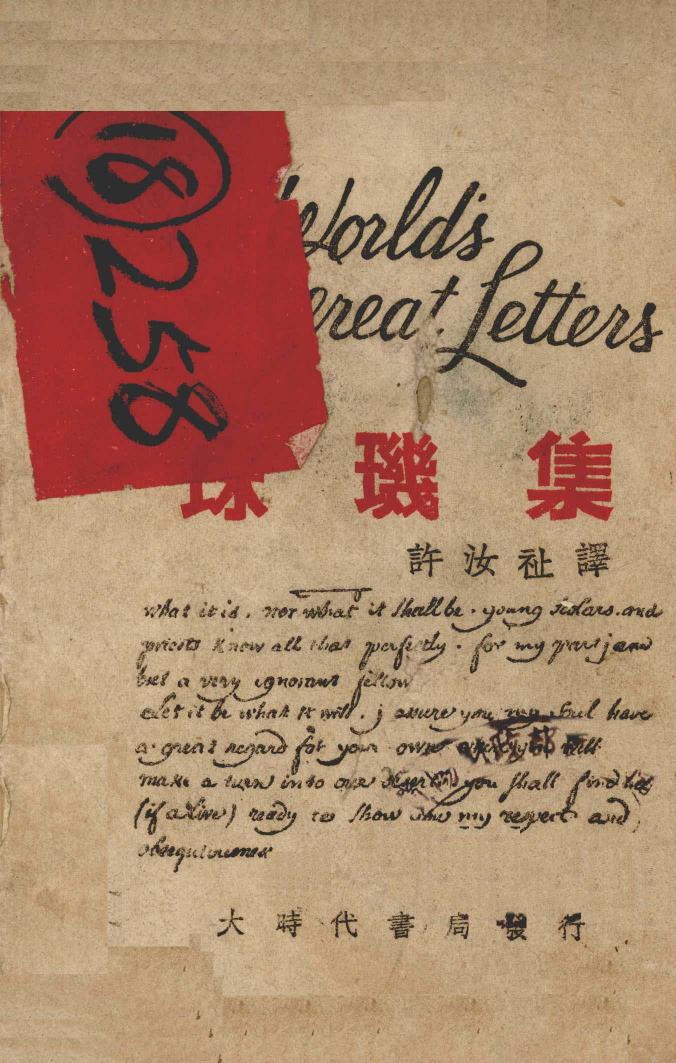 18
258
World's
Great Letters
珠璣集
許汝祉譯
what it is. nor what it shall be. young scolars. and
priests know all that perfectly. for my part j am
but a very ignorant fellow
Let it be what it will. j assure you my soul have
a great regard for your own when you will
make a turn into our desert you shall find me
(if alive) ready to show you my respect and
obsequiousness
大時代書局發行